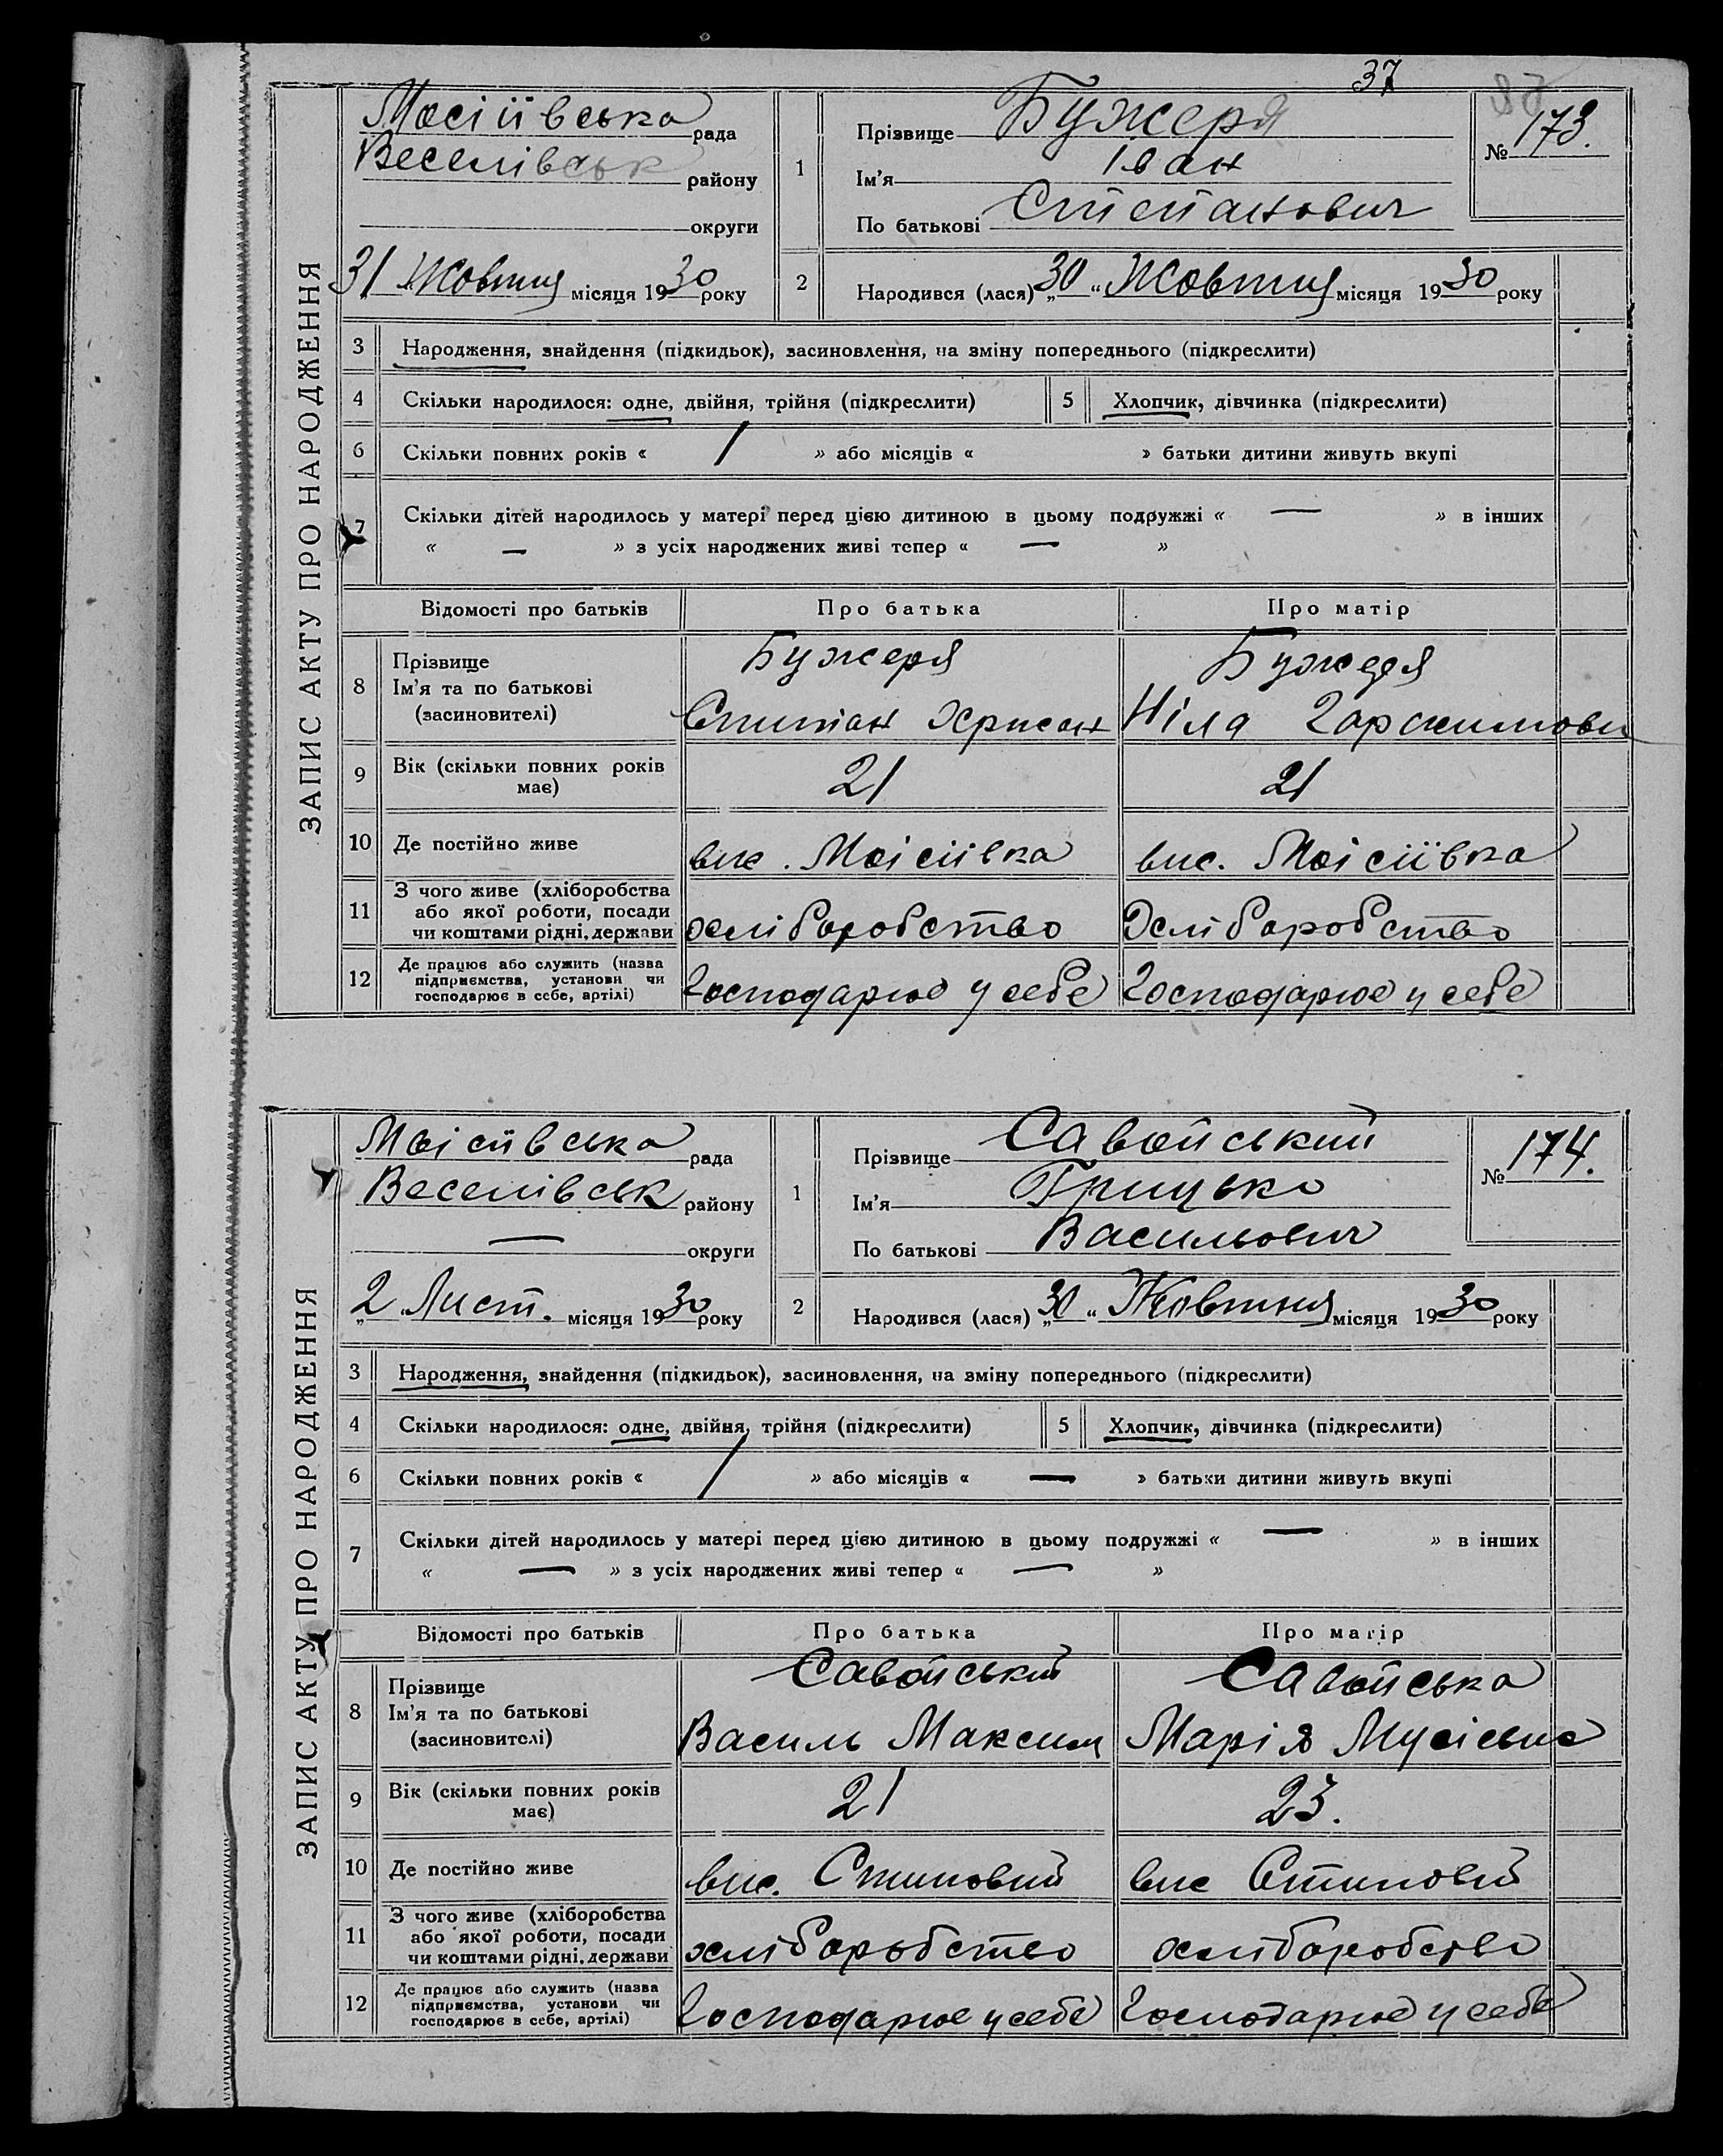 37
ЗАПИС АКТУ ПРО НАРОДЖЕННЯ
Мосіївська рада
Веселівськ району
округи
31 Жовтня місяця 1930 року
1
Прізвище Бужеря
Ім'я Іван
По батькові Степанович
№ 173.
2
Народився (лася) „30“ Жовтня місяця 1930 року
3 Народження, знайдення (підкидьок), засиновлення, на зміну попереднього (підкреслити)
4 Скільки народилося: одне, двійня, трійня (підкреслити) 5 Хлопчик, дівчинка (підкреслити)
6 Скільки повних років « / » або місяців « » батьки дитини живуть вкупі
7 Скільки дітей народилось у матері перед цією дитиною в цьому подружжі « — » в інших
« — » з усіх народжених живі тепер « — »
Відомості про батьків Про батька Про матір
8 Прізвище
Ім'я та по батькові
(засновителі)
Бужеря
Степан Хрисан
Бужеря
Ніла
9 Вік (скільки повних років
має)
21 21
10 Де постійно живе вис. Моісіївка вис. Моісіївка
11 З чого живе (хліборобства
або якої роботи, посади
чи коштами рідні, держави
хліборобство хліборобство
12 Де працює або служить (назва
підприємства, установи чи
господарює в себе, артілі)
Господарює у себе Господарює у себе
ЗАПИС АКТУ ПРО НАРОДЖЕННЯ
Моісіївська рада
Веселівськ району
— округи
„2 Лист. місяця 1930 року
1
Прізвище Савойський
Ім'я Грицько
По батькові Васильович
№ 174.
2
Народився (лася) „30“ Жовтня місяця 1930 року
3 Народження, знайдення (підкидьок), засиновлення, на зміну попереднього (підкреслити)
4 Скільки народилося: одне, двійня, трійня (підкреслити) 5 Хлопчик, дівчинка (підкреслити)
6 Скільки повних років « / » або місяців « — » батьки дитини живуть вкупі
7 Скільки дітей народилось у матері перед цією дитиною в цьому подружжі « — » в інших
« — » з усіх народжених живі тепер « — »
Відомості про батьків Про батька Про матір
8 Прізвище
Ім'я та по батькові
(засиновителі)
Савойський
Василь Максим
Савойська
Марія Мусієвна
9 Вік (скільки повних років
має)
21 23.
10 Де постійно живе вис. Степовий вис Степовий
11 З чого живе (хліборобства
або якої роботи, посади
чи коштами рідні, держави
хліборобство хліборобство
12 Де працює або служить (назва
підприємства, установи чи
господарює в себе, артілі)
Господарює у себе Господарює у себе